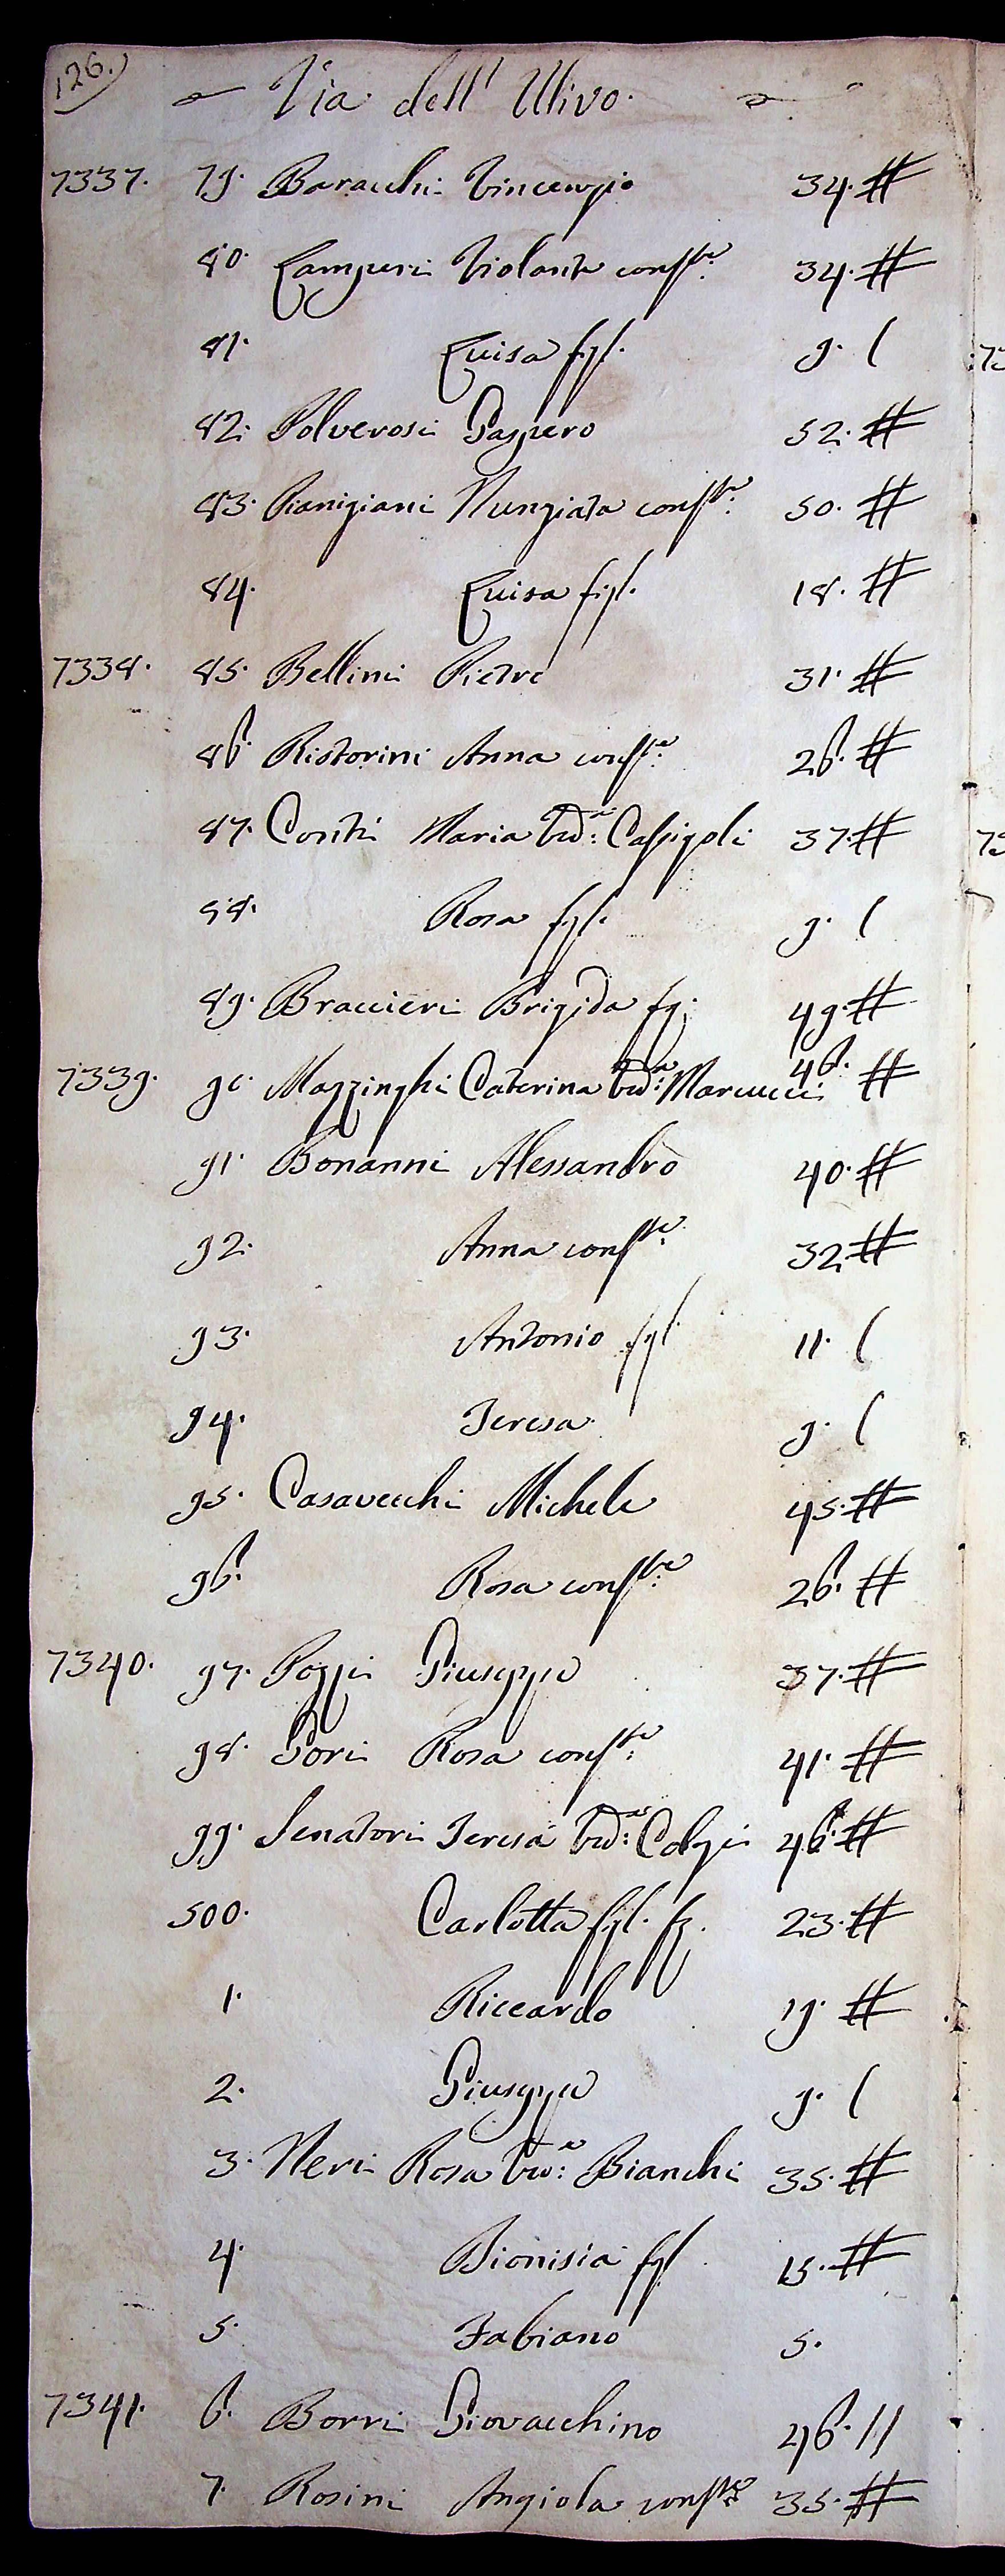 126.)
Via dell' Ulivo.
7337. 79. Baracchi Vincenzio 34. #
80. Lamperi Violante conste. 34. #
81. Luisa figl. 9. (
82. Polverosi Gaspero 52. #
83. Pianigiani Nunziata conste. 50. #
84. Luisa figl. 18. #
7338. 85. Bellini Pietro 31. #
86. Ristorini Anna conste. 26. #
87. Conti Maria Vda: Cassigoli 37. #
88. Rosa figl. 9. (
89. Braccieri Brigida fz. 49. #
7339. 90. Mazzinghi Caterina Vda: Marcucci 46. #
91. Bonanni Alessandro 40. #
92. Anna conste. 32 #
93. Antonio figl. 11. (
94. Teresa 9. (
95. Casavecchi Michele 45. #
96. Rosa conste. 26. #
7340. 97. Pozzi Giuseppe 37. #
98. Gori Rosa conste. 41. #
99. Senatori Teresa Vda: Colzi 46. #
500. Carlotta figl. fz. 23. #
1. Riccardo 19. #
2. Giuseppe 9. (
3. Neri Rosa Va: Bianchi 35. #
4. Dionisia figl 15. #
5. Fabiano 5.
7341. 6. Borri Giovacchino 46. //
7. Rosini Angiola conste. 35. #